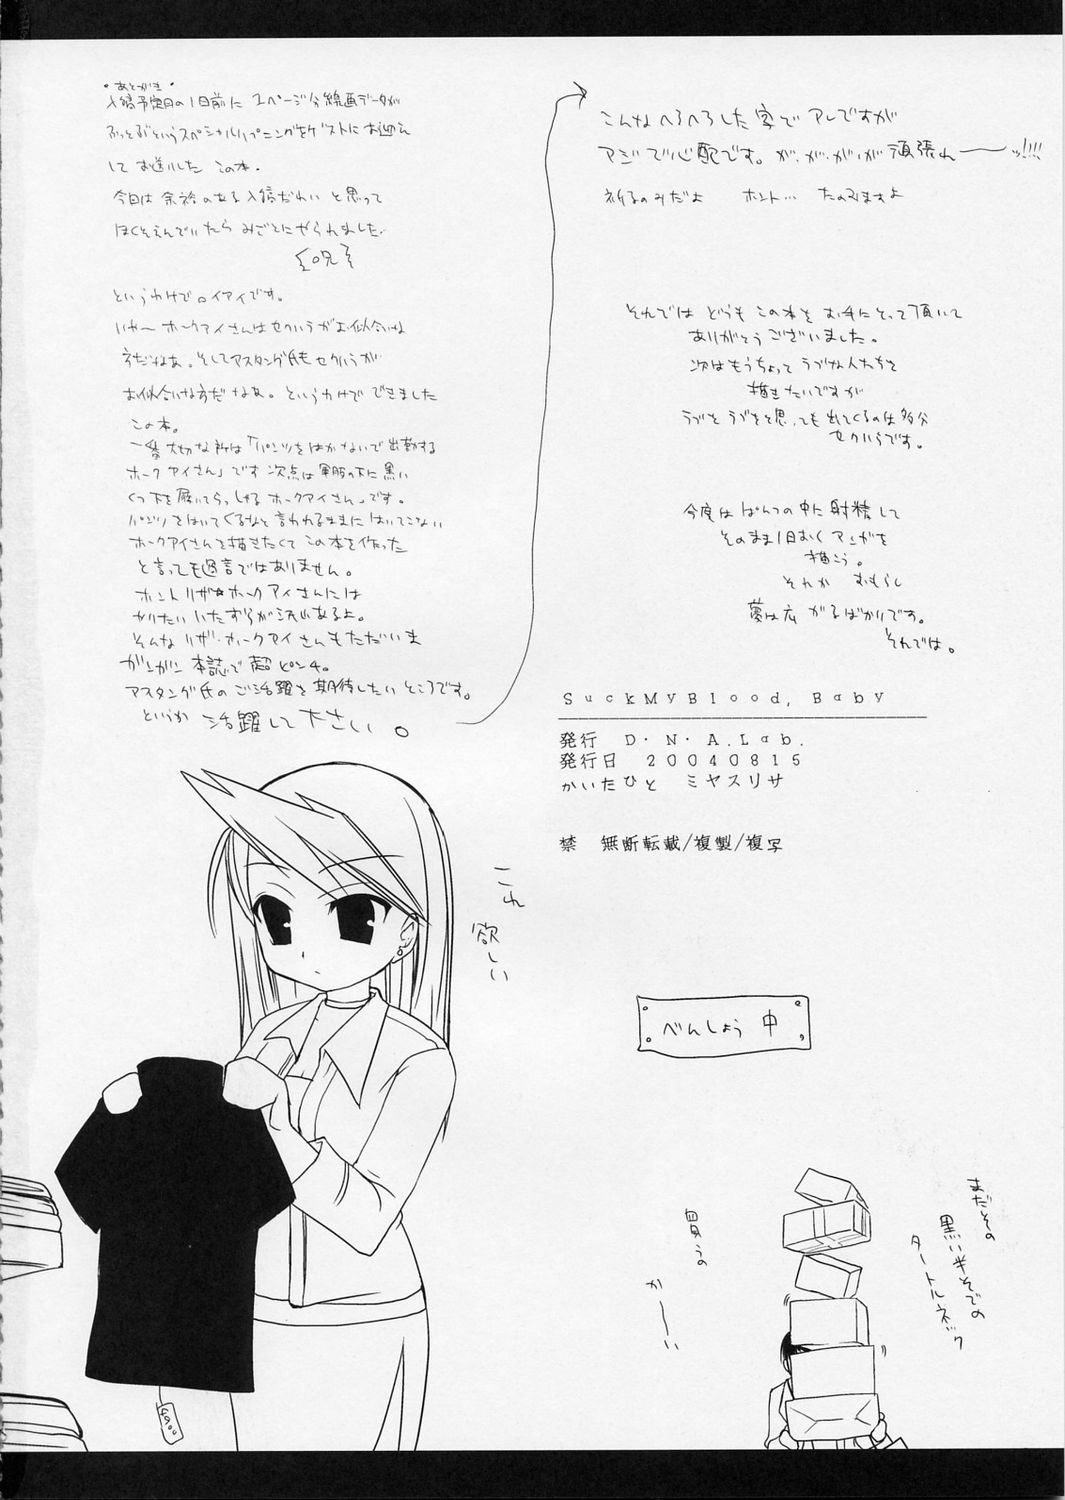 ・あとがき・
入稿予定日の1日前に 1ページ分線画データが
ぶっとぶというスペシャルハプニングをゲストにお迎え
して お送りした この本.
今回は 余裕のある入稿だわい と思って
ほくそえんでいたら みごとにやられました.
呪
というわけで ロイアイです。
いやー ホークアイさんはセクハラがお似合いな
方だねぇ。そしてアスタング氏もセクハラが
お似合いな方だ なぁ。というわけで できました
この本.
一番 大切な所は「パンツをはかないで出勤する
ホークアイさん」です 次点は軍服の下に黒い
くつ下を履いてらっしゃる ホークアイさん」です。
パンツをはいてくるなと言われるままに はいてこない
ホークアイさんを描きたくて この本を作った
と言っても過言ではありません。
ホント リザ★ホークアイさんには
やりたい いたずらが沢山あるよ。
そんな リザ・ホークアイさんもただいま
ガンガン 本誌で 超ピンチ。
アスタング氏の ご活躍を期待したい ところです。
というか 活躍して下さい。
こんな へろへろした字で アレですが
マジで心配です。が、が、が、が 頑張れ――ッ!!!!
祈るのみだよ ホント… たのみますよ
それでは どうも この本を お手にとって頂いて
ありがとうございました。
次はもうちょって ラブな人たちを
描きたいですが
ラブを ラブをと思っても 出てくるのは多分
セクハラです。
今度は ぱんつの中に射精して
そのまま1日おく マンガを
描こう。
それか おもらし
夢は広 がるばかりです。
それでは。
SuckMyBlood, Baby
発行 D・N・A.Lab.
発行日 20040815
かいたひと ミヤスリサ
禁 無断転載/複製/複写
これ
欲しい
べんしょう 中
まだその
黒い半そでの
タートルネック
買うの
かーい